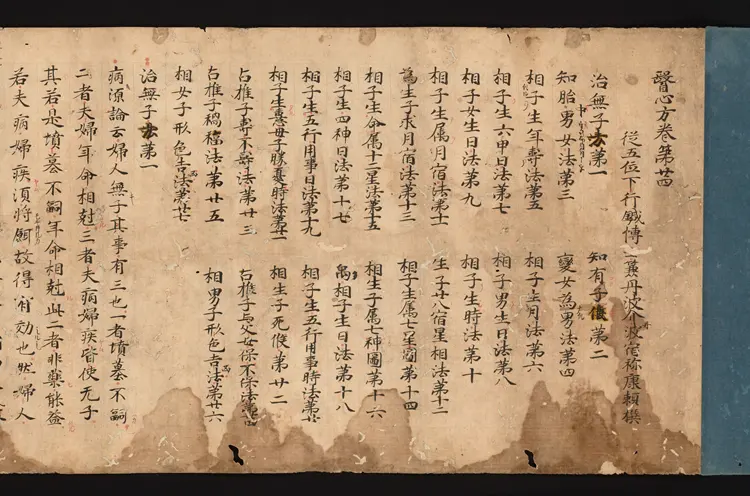 醫心方卷第廿四
從五位下行鍼博士兼丹波介丹波宿祢康頼撰
治無子方第一 知有子候第二
知胎男女法第三 變女為男法第四
相子生年壽法第五 相子生月法第六
相子生六甲日法第七 相子男生日法第八
相子女生日法第九 相子生時法第十
相子生屬月宿法第十一 生子廿八宿星相法第十二
為生子求月宿法第十三 相子生屬七星圖第十四
相子生命屬十二星法第十五 相生子屬七神圖第十六
相子生四神日法第十七 禹相子生日法第十八
相子生五行用事日法第十九 相子生五行用事時法第廿
相子生意母子勝憂時法第廿一 相生子死候第廿二
占推子壽不壽法第廿三 占推子與父母保不保法第廿四
占推子禍福法第廿五 相男子形色吉法第廿六
相女子形色吉法第廿七
治無子方第一
病源論云婦人無子其事有三也一者墳墓不嗣
二者夫婦年命相尅三者夫病婦疾皆使无子
其若是墳墓不嗣年命相尅此二者非藥能益
若夫病婦疾須將餌故得有効也然婦人